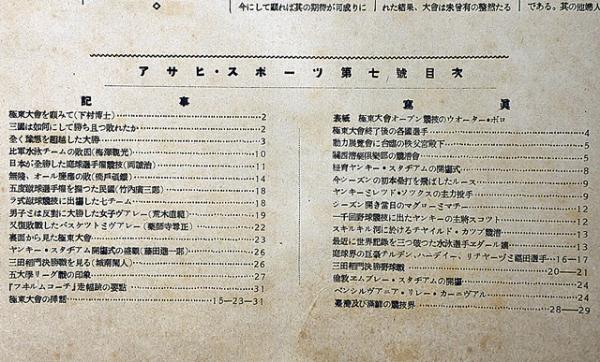 今にして顧れば其の期待が可成りに
れた結果、大會は未曾有の整然たる
である。其の他婦人
アサヒ・スポーツ第七號目次
記事
極東大會を顧みて(下村博士) 2
三國は如何にして勝ち且つ敗れたか 2
全く豫想を超越した大勝 3
比軍水泳チームの敗因(梅澤親光) 10
日本が全勝した庭球選手權競技 11
無殘、オール慶應の敗 14
五度蹴球選手權を握つた民國(竹內廣三郎) 18
ラ式蹴球競技に出場した七チーム 18
男子ミは反對に大勝した女子ヴアレー(荒木直範) 19
又復敗戰したバスケツトミヴアレー(藥師寺尊正) 22
裏面から見た極東大會 23
ヤンキー・スタヂアム開場式の盛觀 26
三田稻門決勝戰を見る(城南閑人) 26
五大學リーグ戰の印象 27
『フネルムコーチ』走幅跳の要點 31
極東大會の挿話 15—23—31
寫眞
表紙 極東大會オープン競技のウオーター・ポロ
極東大會終了後の各國選手 4
動力展覽會に台臨の秩父宮殿下 5
關西漕艇俱樂部の競漕會 5
紐育ヤンキー・スタヂアムの開場式 8
今シーズンの初本壘打を飛ばしたルース 9
ヤンキーミレツド・ソツクスの主力投手 9
シーズン開き當日のマグローミマチー 9
一千回野球競技に出たヤンキーの主將スコツト 12
スキルキル河に於けるチヤイルド・カツプ競漕 13
最近に世界記錄を三つ破つた水泳選手エダール孃 13
庭球界の巨豪チルデン、ハーデイー、リチヤーヅミ福田選手 16—17
三田稻門決勝野球戰 20—21
倫敦ヱムブレー・スタヂアムの開場 24
ペンシルヴアニア・リレー・カーニヴアル 24
臺灣及び滿鮮の競技界 28—29